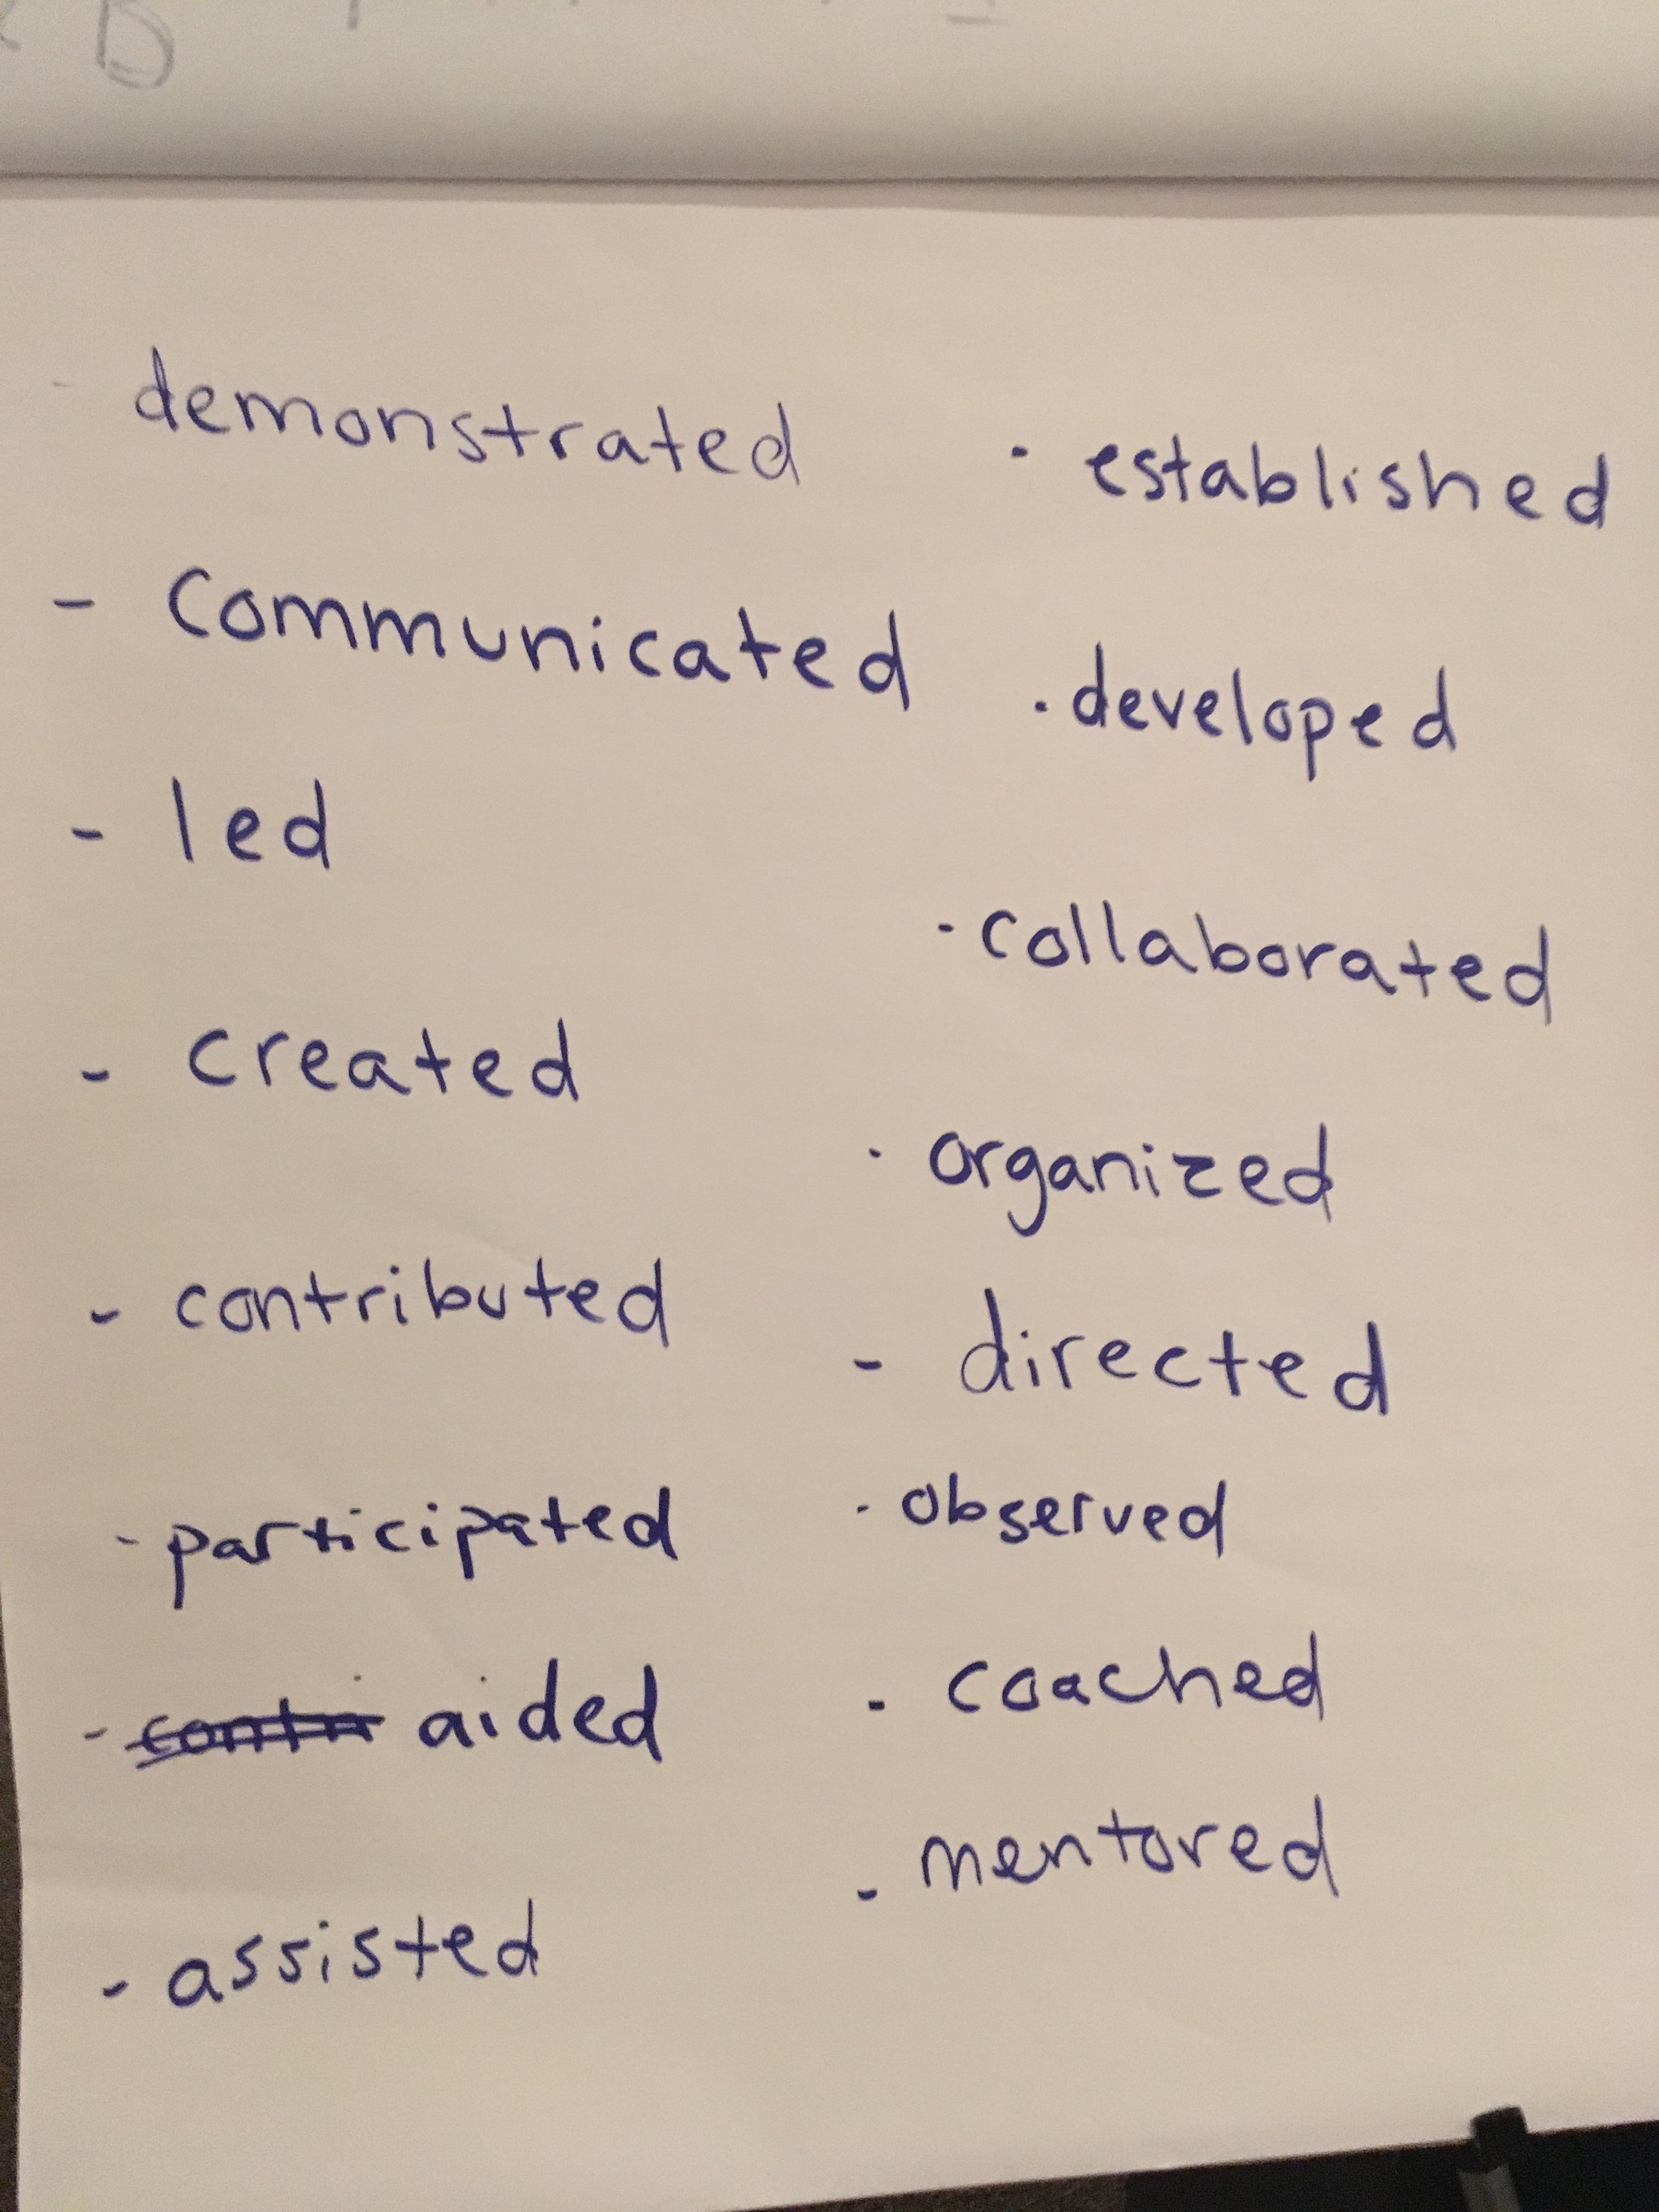 B
- demonstrated
- communicated
- led
- created
- contributed
- participated
- aided
- assisted
· established
· developed
- collaborated
· organized
- directed
- observed
- coached
- mentored